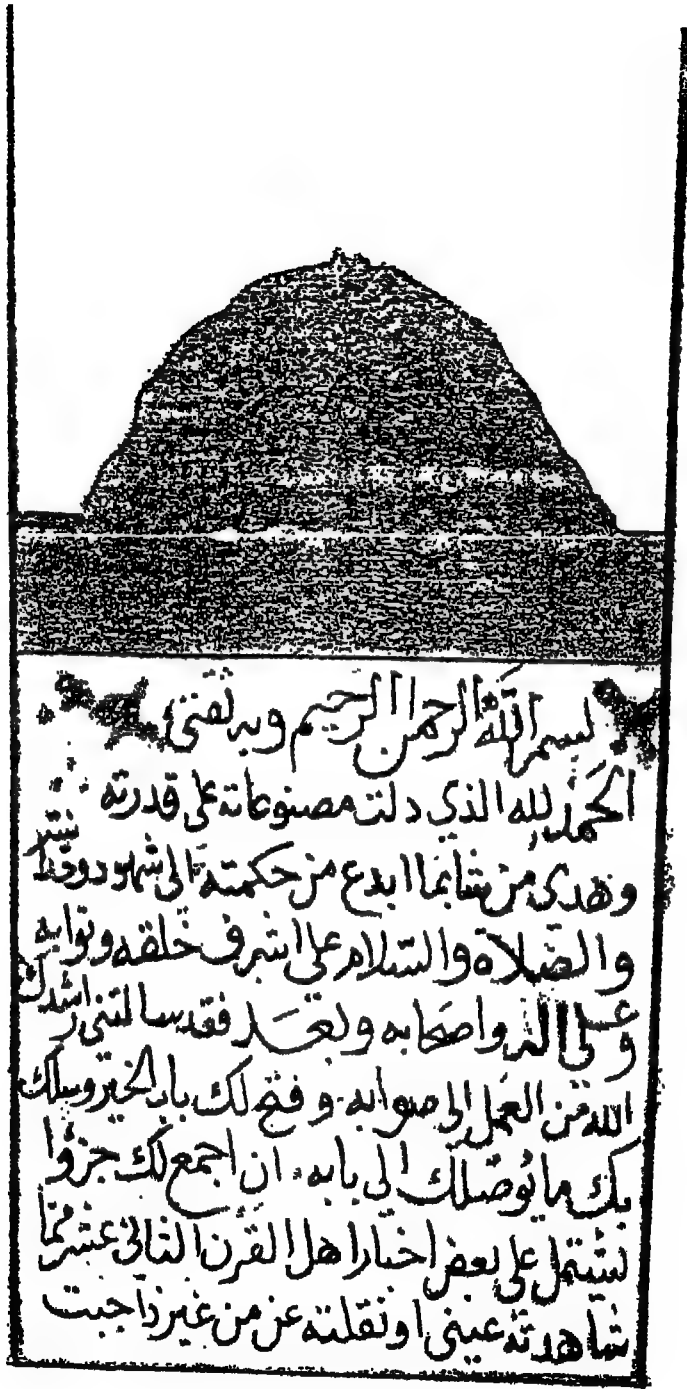 بسم الله الرحمن الرحيم وبه ثقتي
الحمد لله الذي دلت مصنوعاته على قدرته
وهدى من شا بما ابدع من حكمته الى شهود
والصلاة والسلام على اشرف خلقه ونوابه
وعلى اله واصحابه وبعد فقد سالتني ارشدك
الله من العمل الى صوابه وفتح لك باب الخير وسلك
بك ما يوصلك الى بابه ان اجمع لك جزؤا
يشتمل على بعض اخبار اهل القرن الثاني عشر مما
شاهدته عيني او نقلته عن من غبر ذاجبت